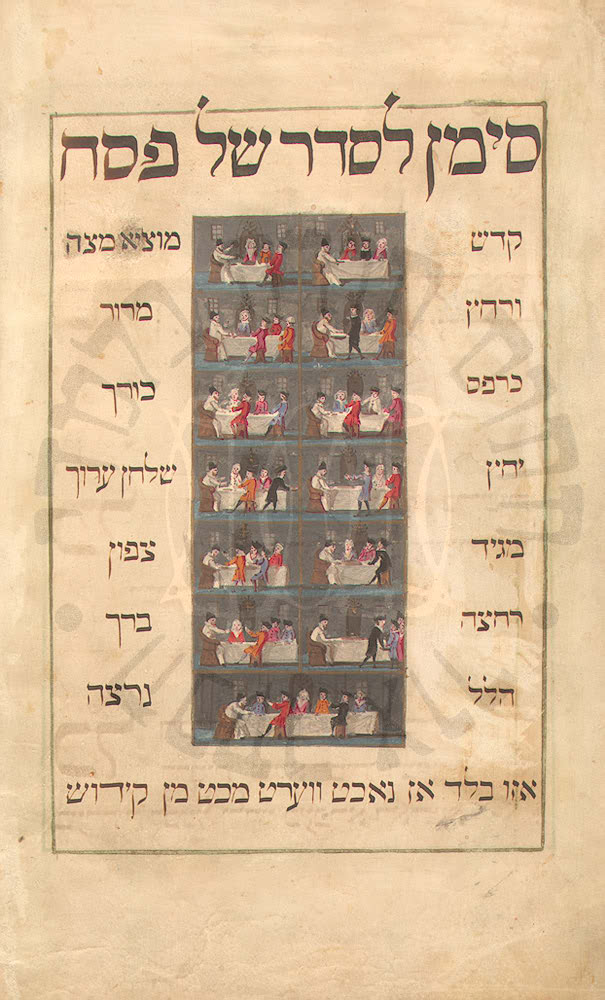 סימן לסדר של פסח
קדש
ורחץ
כרפס
יחץ
מגיד
רחצה
הלל
מוציא מצה
מרור
כורך
שלחן ערוך
צפון
ברך
נרצה
אזו בלד אז נאכט ווערט מכט מן קידוש